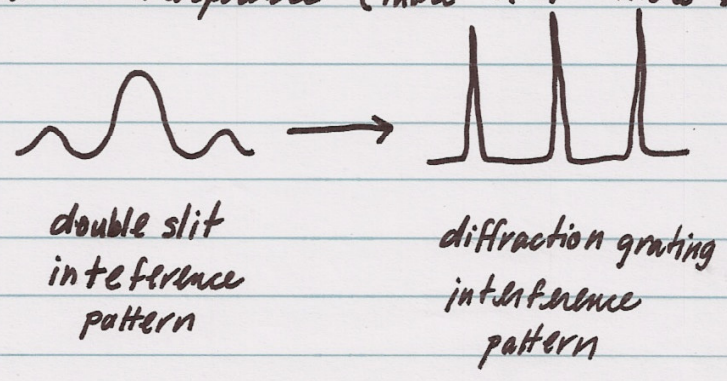 double slit
inteference
pattern
diffraction grating
interference
pattern